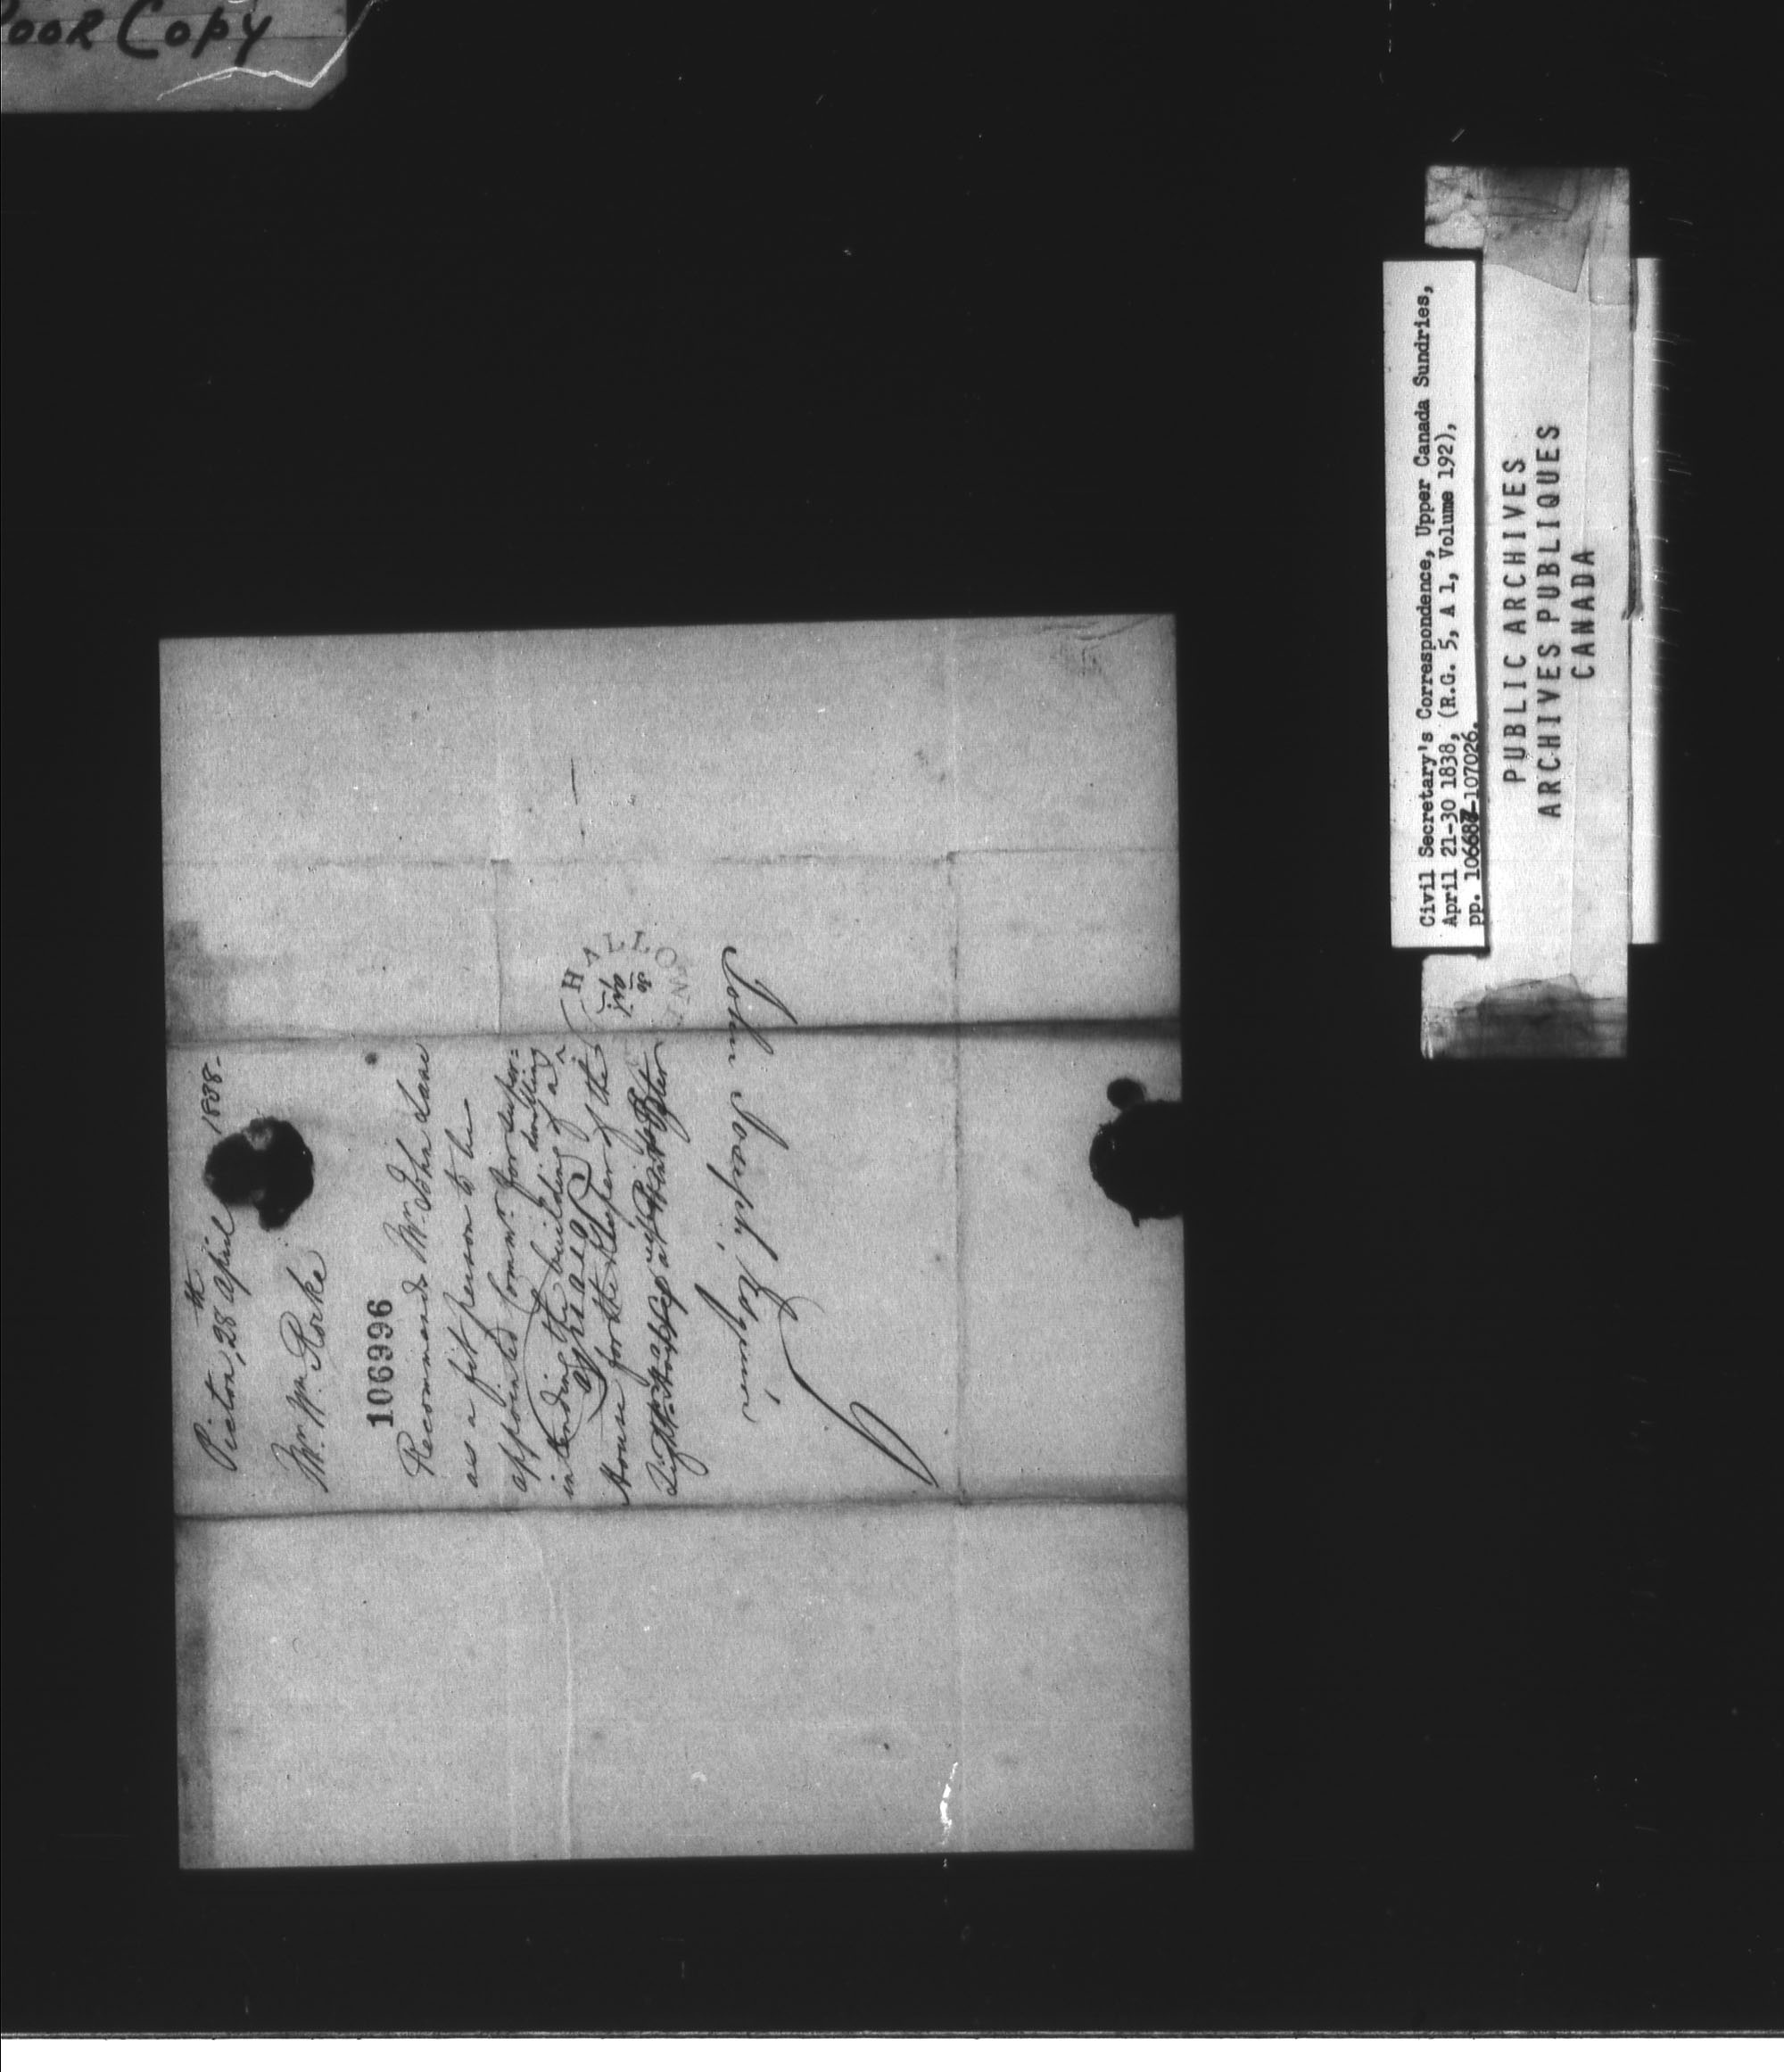 Poor Copy
Picton, 28th April 1838-
Mr. Wm. Rorke
106996
Recommends Mr. John Lane
as a fit person to be
appointed Commr. for super=
intending the building of a dwelling
House for the Keeper of the
Light-House at Point Peter
HALLOWELL
John Joseph, Esquire
Civil Secretary's Correspondence, Upper Canada Sundries,
April 21-30 1838, (R.G. 5, A 1, Volume 192),
pp. 106687-107026.
PUBLIC ARCHIVES
ARCHIVES PUBLIQUES
CANADA